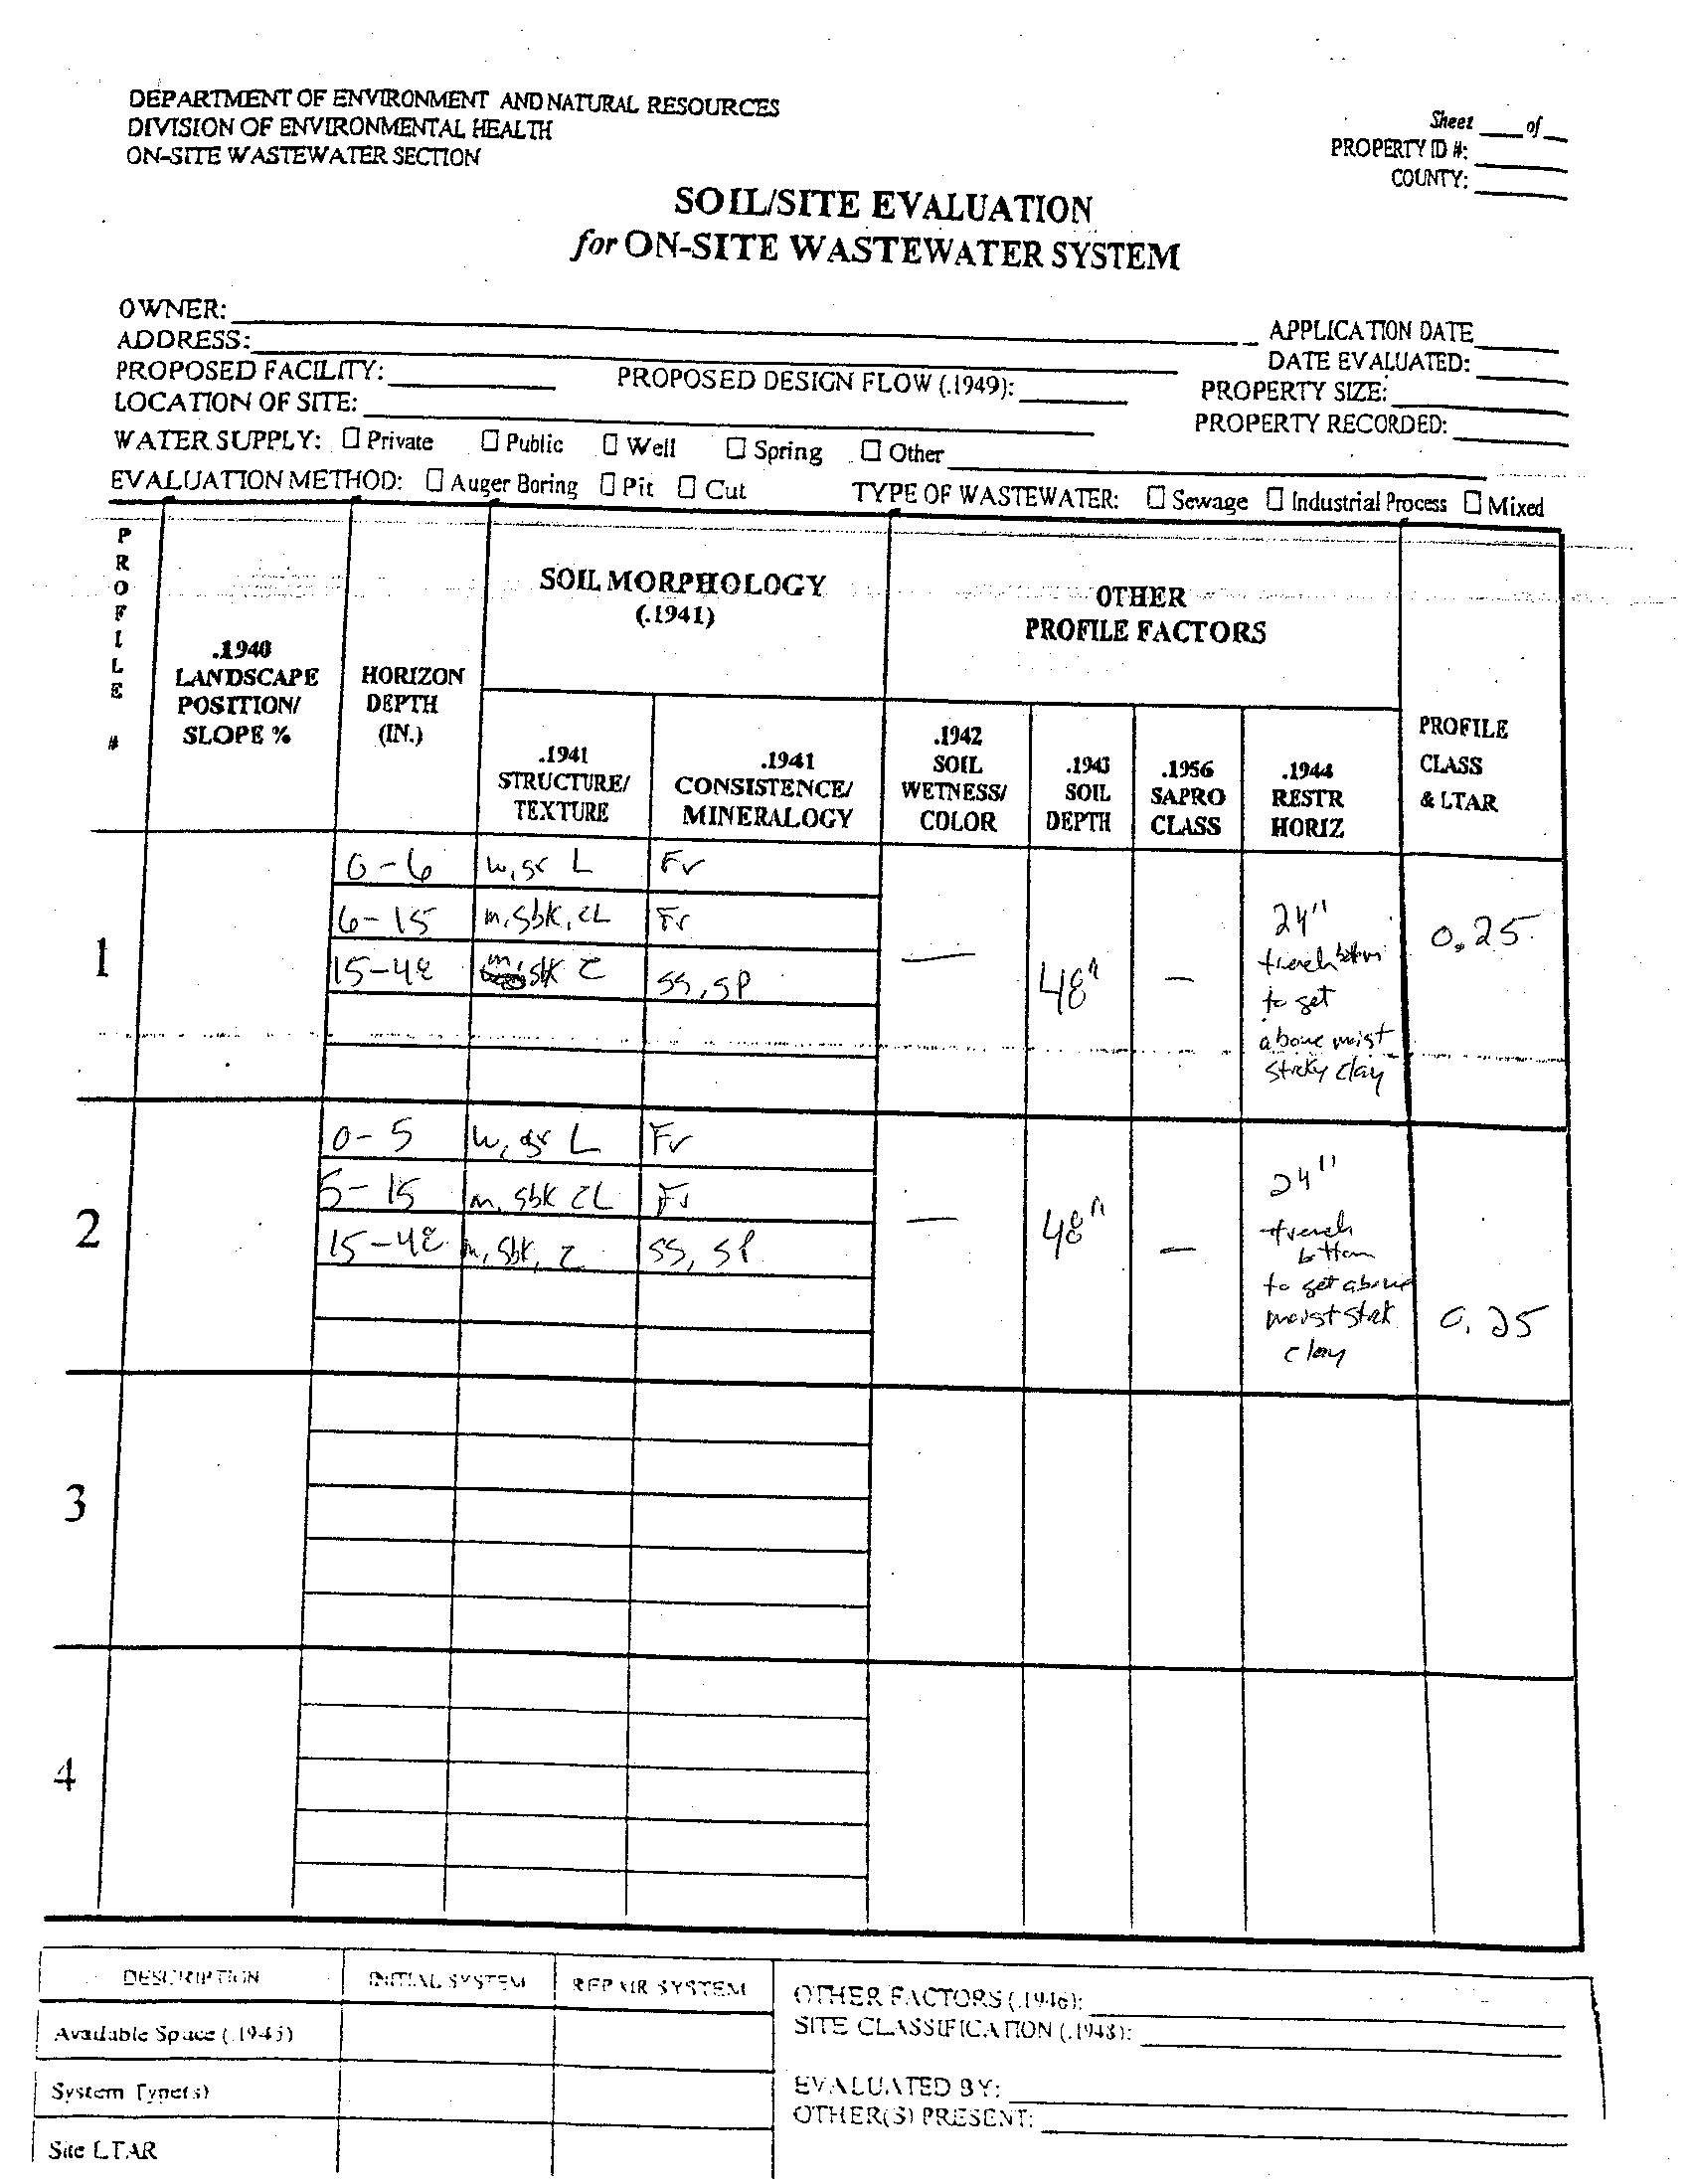 DEPARTMENT OF ENVIRONMENT AND NATURAL RESOURCES
DIVISION OF ENVIRONMENTAL HEALTH
ON-SITE WASTEWATER SECTION
Sheet ____ of __
PROPERTY ID #:
COUNTY:
SOIL/SITE EVALUATION
for ON-SITE WASTEWATER SYSTEM
OWNER:
ADDRESS:
APPLICATION DATE
PROPOSED FACILITY: PROPOSED DESIGN FLOW (.1949):
DATE EVALUATED:
LOCATION OF SITE:
PROPERTY SIZE:
PROPERTY RECORDED:
WATER SUPPLY: ☐ Private ☐ Public ☐ Well ☐ Spring ☐ Other
EVALUATION METHOD: ☐ Auger Boring ☐ Pit ☐ Cut TYPE OF WASTEWATER: ☐ Sewage ☐ Industrial Process ☐ Mixed
PROFILE #
.1940
LANDSCAPE
POSITION/
SLOPE %
HORIZON
DEPTH
(IN.)
SOIL MORPHOLOGY
(.1941)
.1941
STRUCTURE/
TEXTURE
.1941
CONSISTENCE/
MINERALOGY
OTHER
PROFILE FACTORS
.1942
SOIL
WETNESS/
COLOR
.1943
SOIL
DEPTH
.1956
SAPRO
CLASS
.1944
RESTR
HORIZ
PROFILE
CLASS
& LTAR
1
0-6 w, gr L Fr
6-15 m, sbk, CL Fr
15-48 m, sbk C SS, SP
—
48"
—
24"
trench bottom
to get
above moist
sticky clay
0.25
2
0-5 w, gr L Fr
5-15 m, sbk CL Fr
15-48 m, sbk, C SS, SP
—
48"
—
24"
trench
bottom
to get above
moist
clay
0.25
3
4
DESCRIPTION INITIAL SYSTEM REPAIR SYSTEM
Available Space (.1945)
System Type(s)
Site LTAR
OTHER FACTORS (.1946):
SITE CLASSIFICATION (.1948):
EVALUATED BY:
OTHER(S) PRESENT: